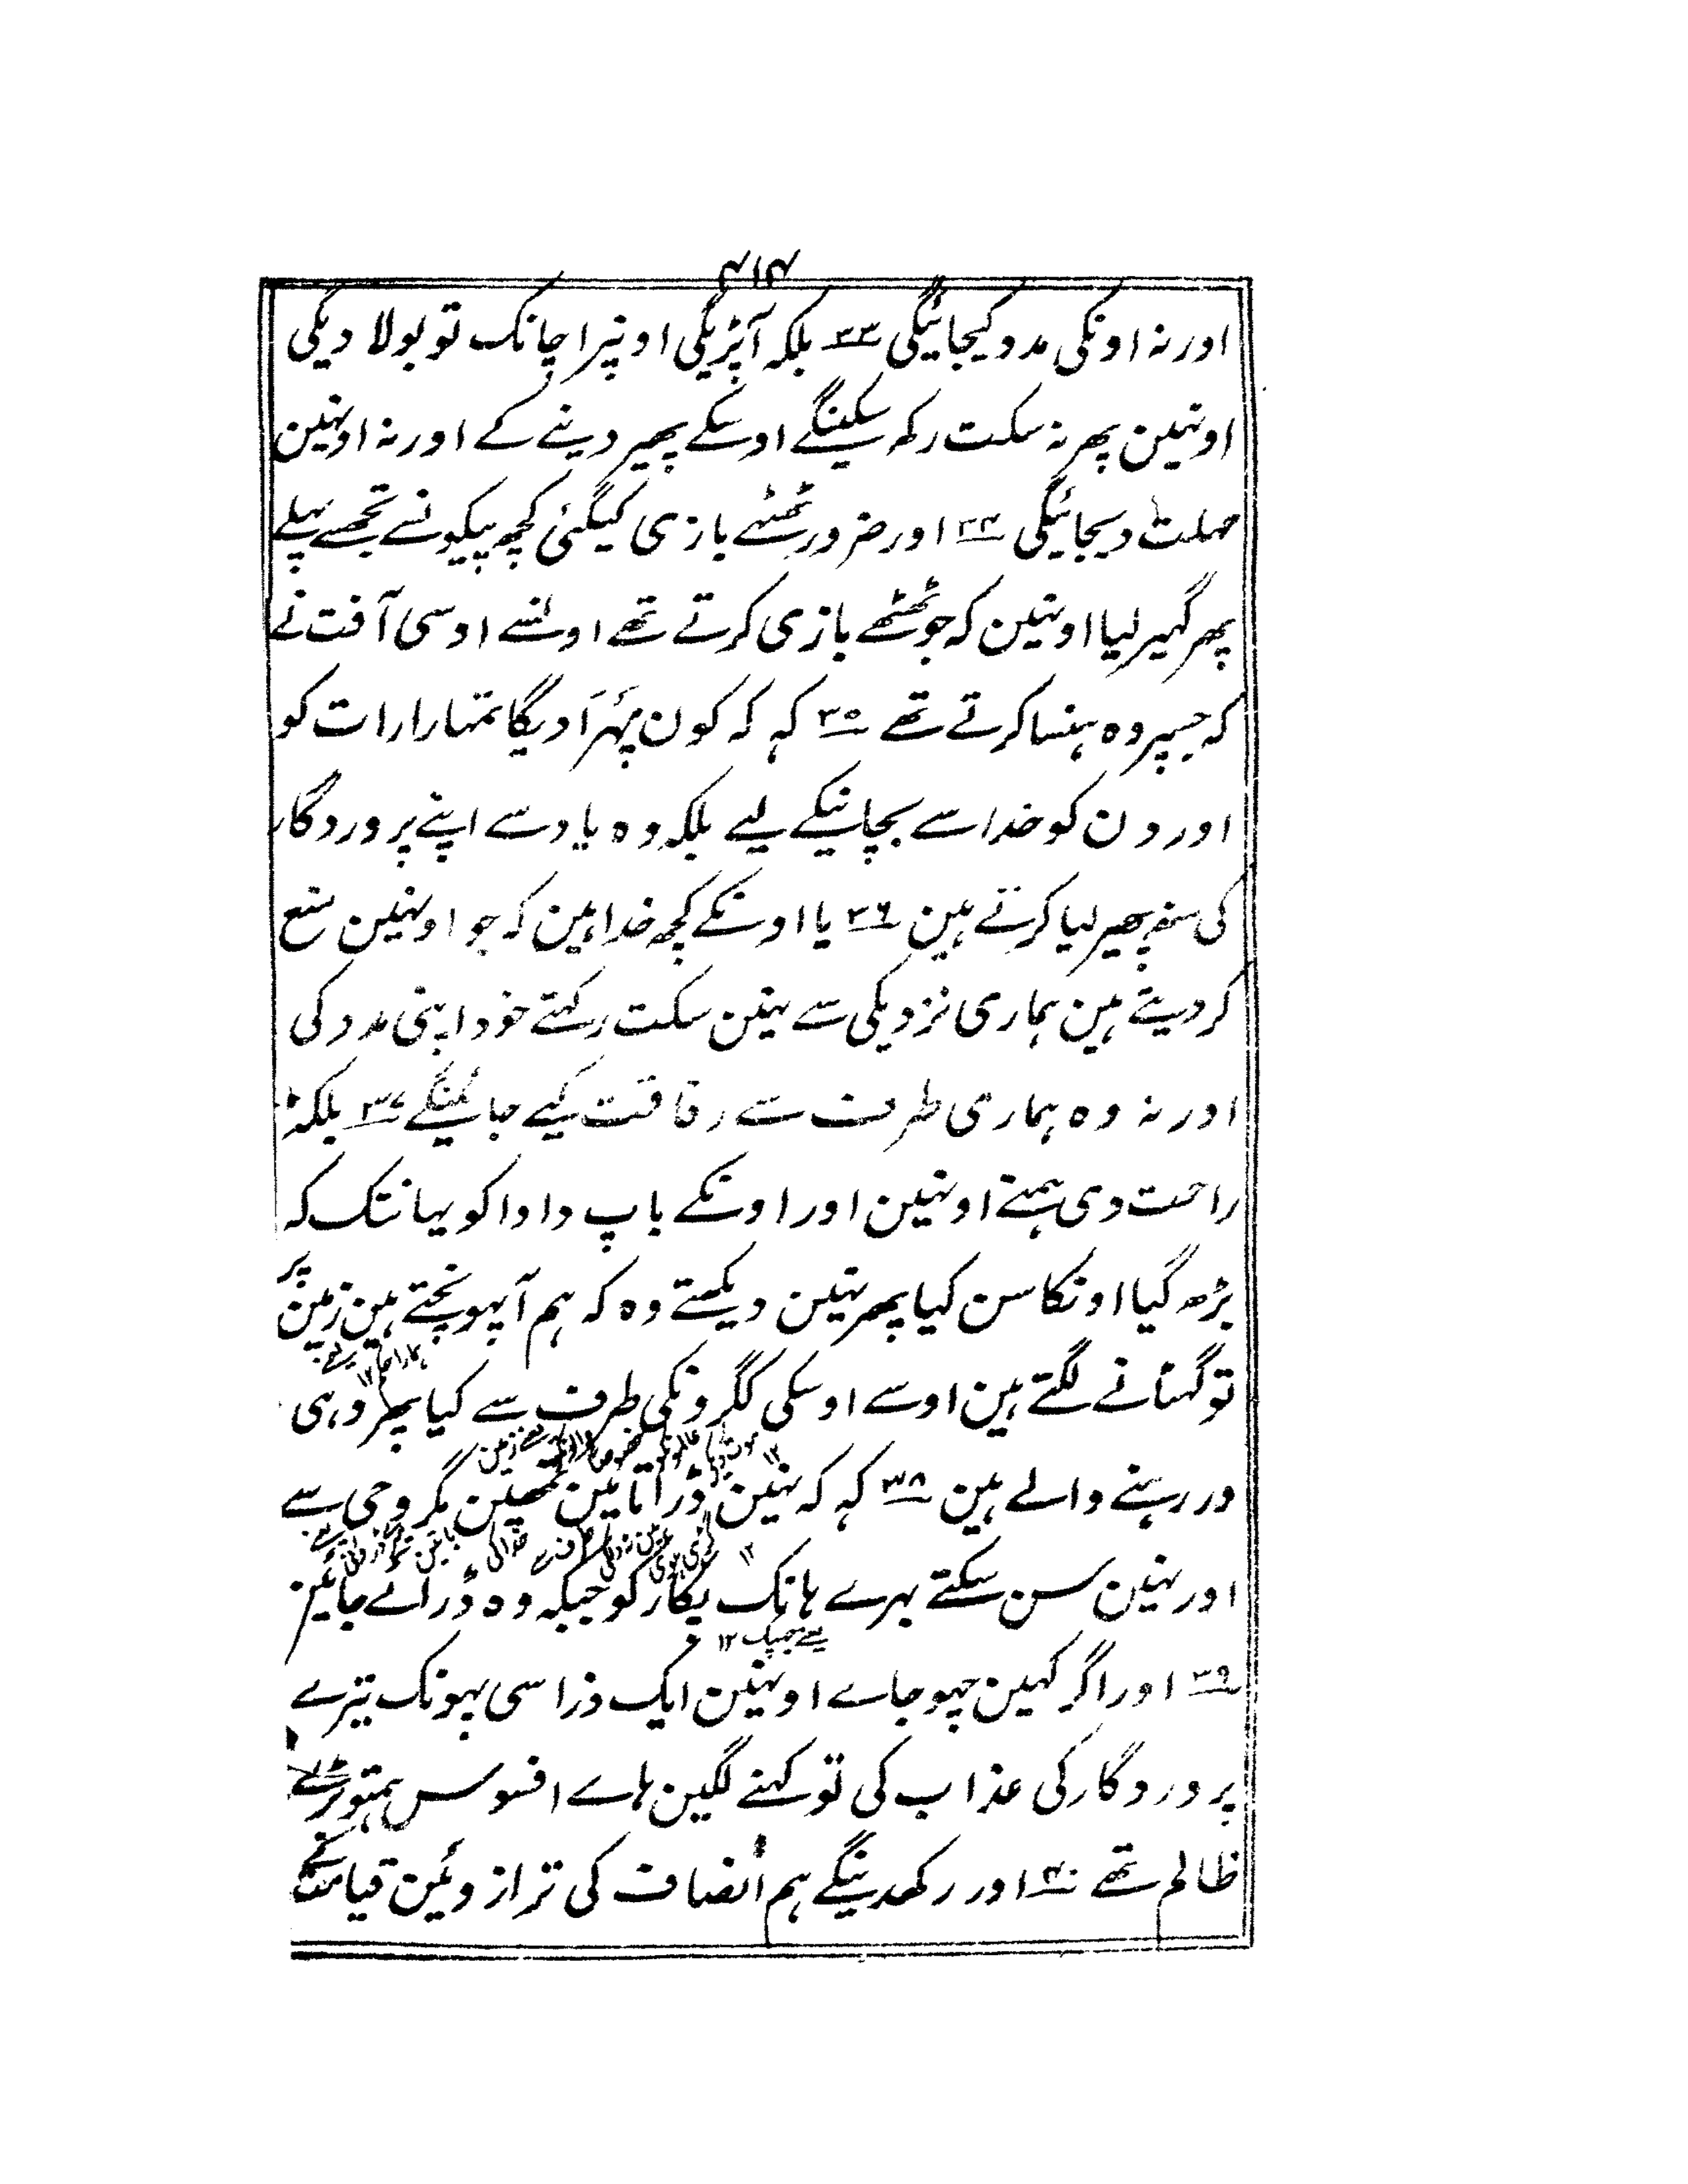 ۴۱۴
اورنہ اونکی مدد کیجائیگی ۳۳ بلکہ آپڑیگی اونپر اچانک تو بولا دیگی
اونہین پھر نہ سکت رکھ سکینگے اوسکے پھیر دینے کے اورنہ اونہین
مہلت دیجائیگی ۳۴ اور ضرور ٹھٹھے بازی کیگئی کچھ پیکونسے تجھسے پہلے
پھر گہیر لیا اونہین کہ جو ٹھٹھے بازی کرتے تھے اونسے اوسی آفت نے
کہ جسپر وہ ہنسا کرتے تھے ۳۵ کہہ کہ کون پہرا دیگا تمہارا رات کو
اور دن کو خدا سے بچانیکے لیے بلکہ وہ یاد سے اپنے پروردگار
کی منہ پھیر لیا کرتے ہین ۳۶ یا اونکے کچھ خدا ہین کہ جو اونہین منع
کردیتے ہین ہماری نزدیکی سے نہین سکت رکہتے خود اپنی مدد کی
اور نہ وہ ہماری طرف سے رفاقت کیے جائینگے ۳۷ بلکہ
راحت دی ہمنے اونہین اور اونکے باپ دادا کو یہانتک کہ
بڑھ گیا اونکا سن کیا پھر نہین دیکہتے وہ کہ ہم آپہونچتے ہین زمین پر
تو گہٹانے لگتے ہین اوسے اوسکی ککرونکی طرف سے کیا پھر وہی
ور رہنے والے ہین ۳۸ کہہ کہ نہین ڈراتا مین تمھین مگر وحی سے
اور نہین سن سکتے بہرے ہانک پکار کو جبکہ وہ ڈرائے جائین
یعنے بھپک ۱۲
۳۹ اور اگر کہین چہو جاے اونہین ایک ذرا سی پہونک تیرے
پروردگار کی عذاب کی تو کہنے لگین ہاے افسوس ہمتو بڑے
ظالم تھے ۴۰ اور رکھدینگے ہم انصاف کی ترازوئین قیامت کے